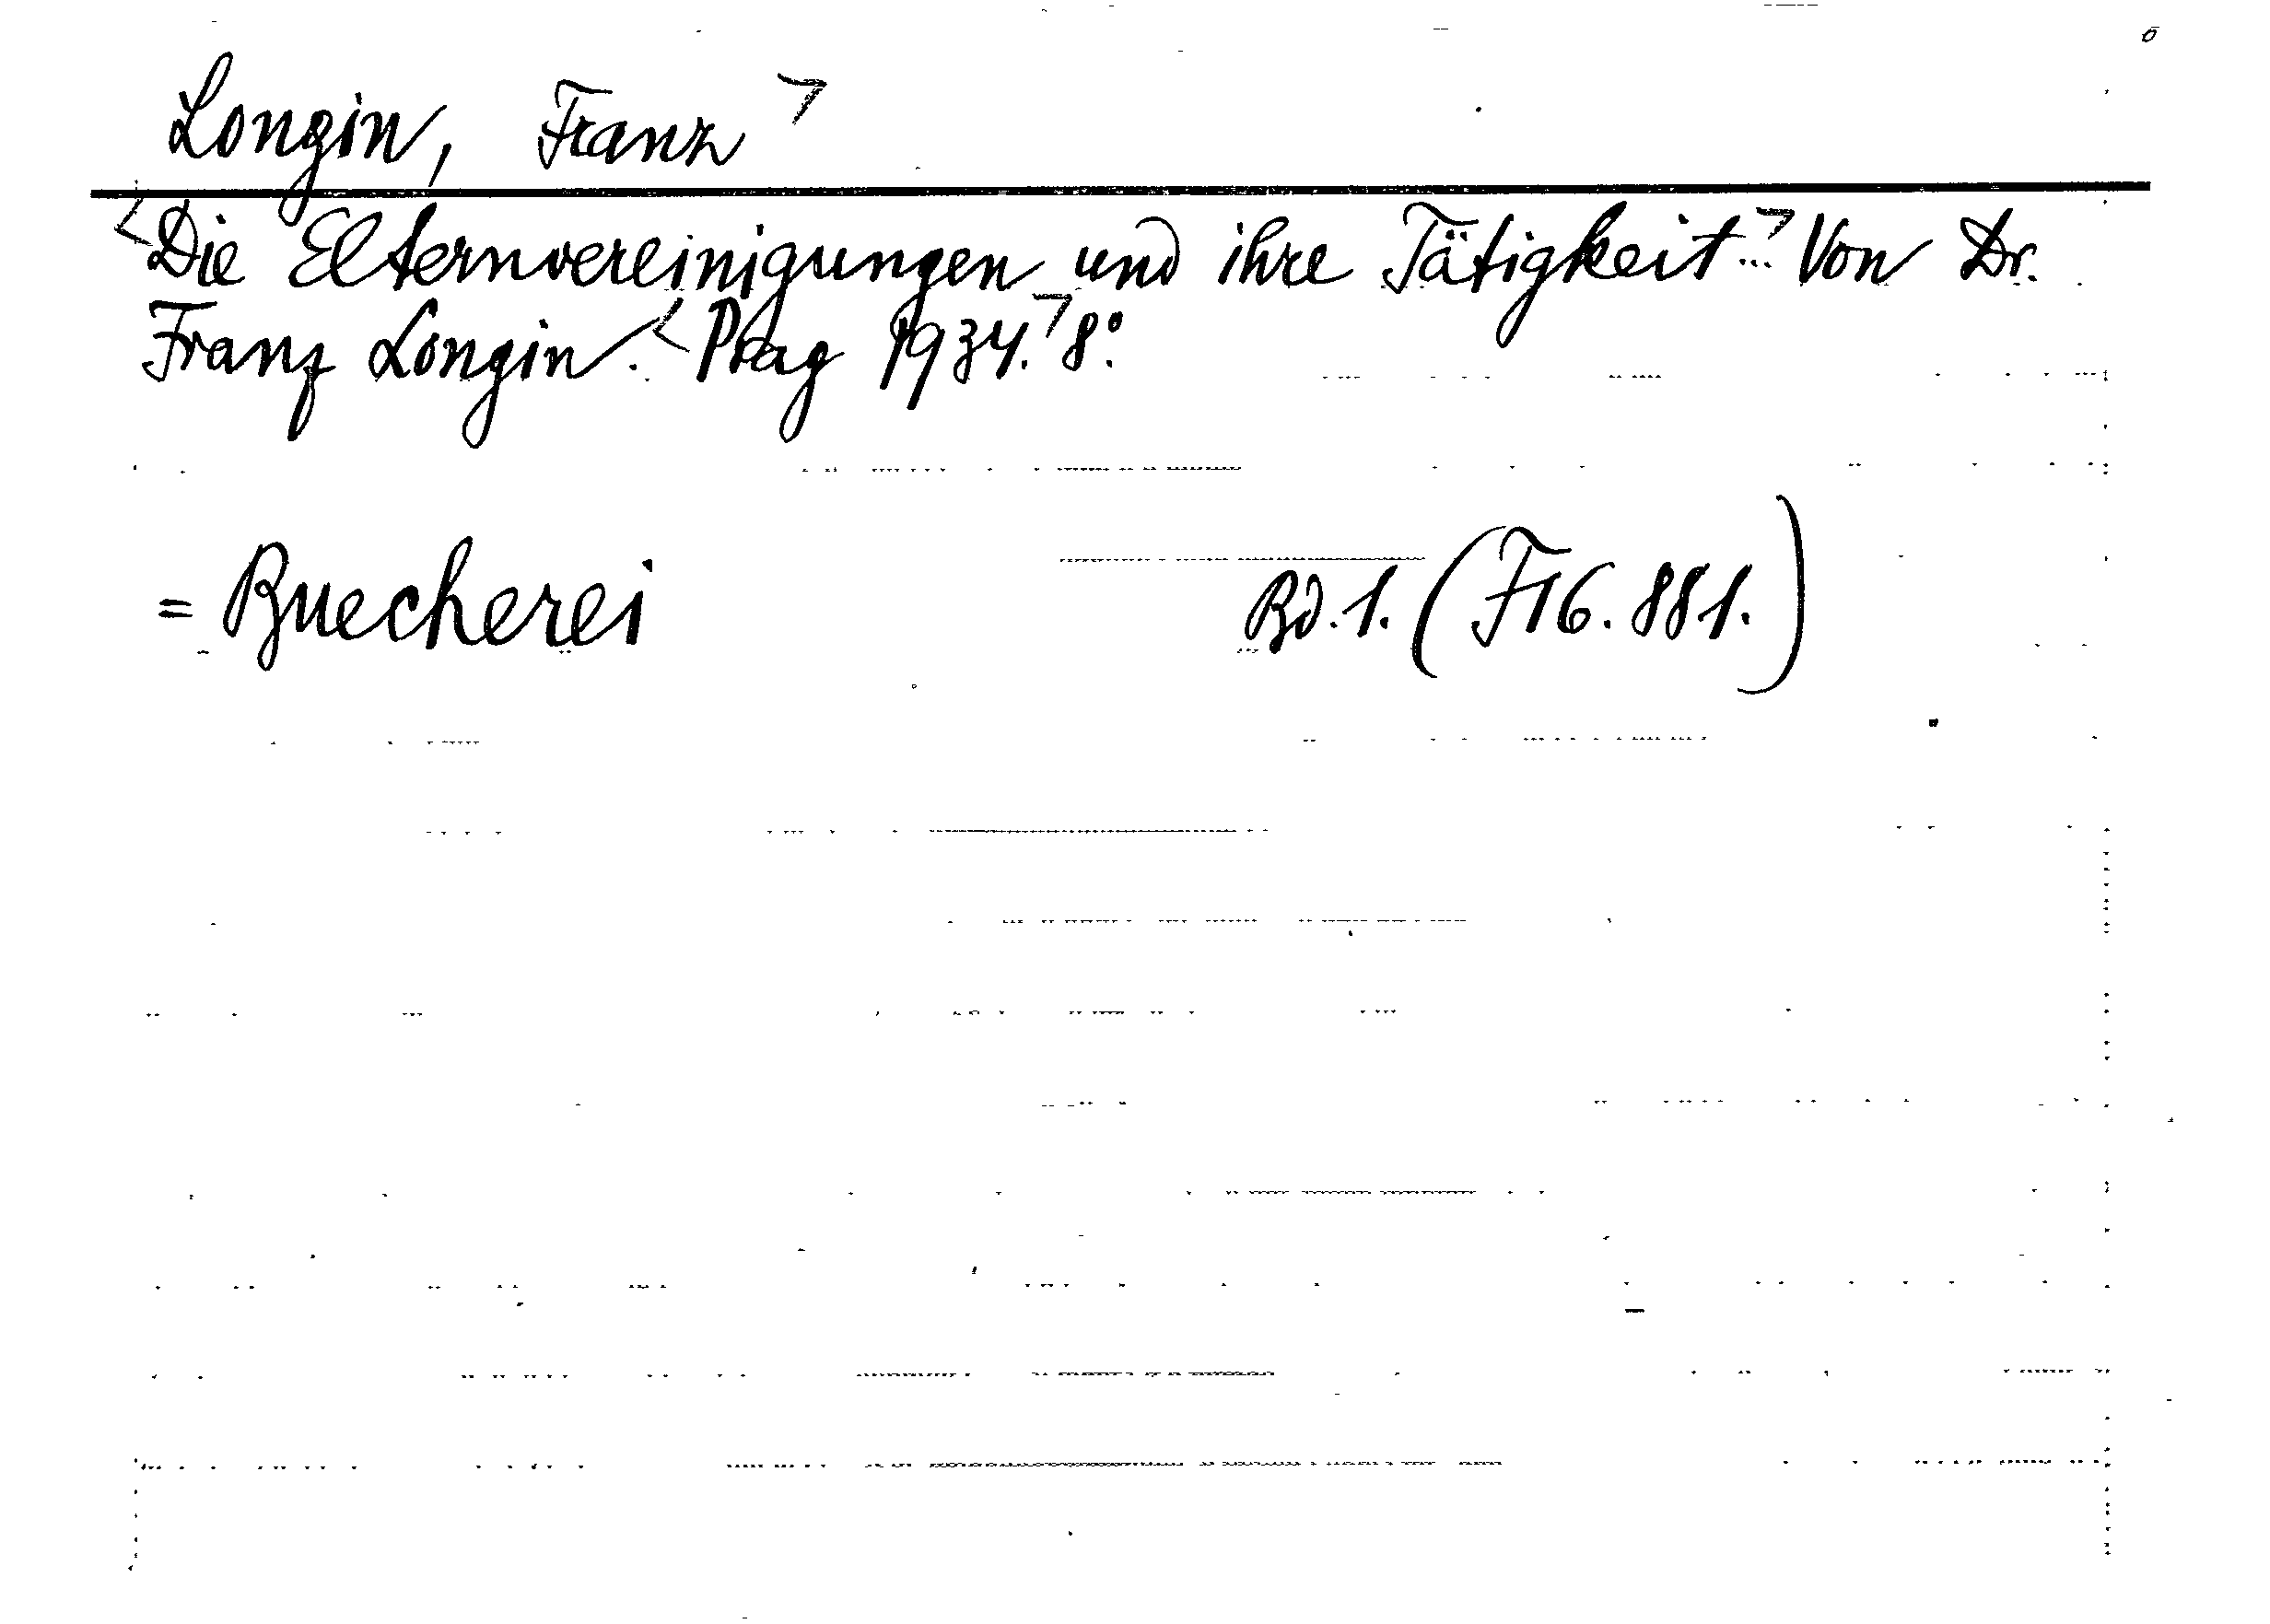 Longin, Franz ㄱ
<Die Elternvereinigungen und ihre Tätigkeit...ㄱ Von Dr.
Franz Longin. <Prag 1934.ㄱ 8°.
= Buecherei Bd. 1. (F16. 881.)